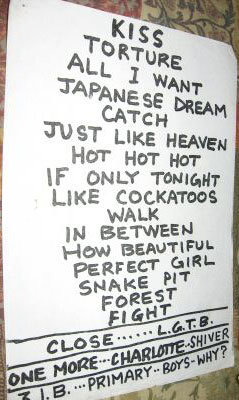 KISS
TORTURE
ALL I WANT
JAPANESE DREAM
CATCH
JUST LIKE HEAVEN
HOT HOT HOT
IF ONLY TONIGHT
LIKE COCKATOOS
WALK
IN BETWEEN
HOW BEAUTIFUL
PERFECT GIRL
SNAKE PIT
FOREST
FIGHT
CLOSE...... L.G.T.B.
ONE MORE...CHARLOTTE..SHIVER
3 I.B. ...PRIMARY..BOYS-WHY?